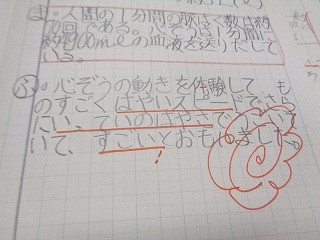 ま。人間の1分間の脈はく数は約
70回である。心ぞうは1分間に
約4900mlの血液を送りだして
いる。
心ぞうの動きを体験して、も
のすごくはやいスピードで
ていのはやさでうごいて
いて、すごいとおもいました。